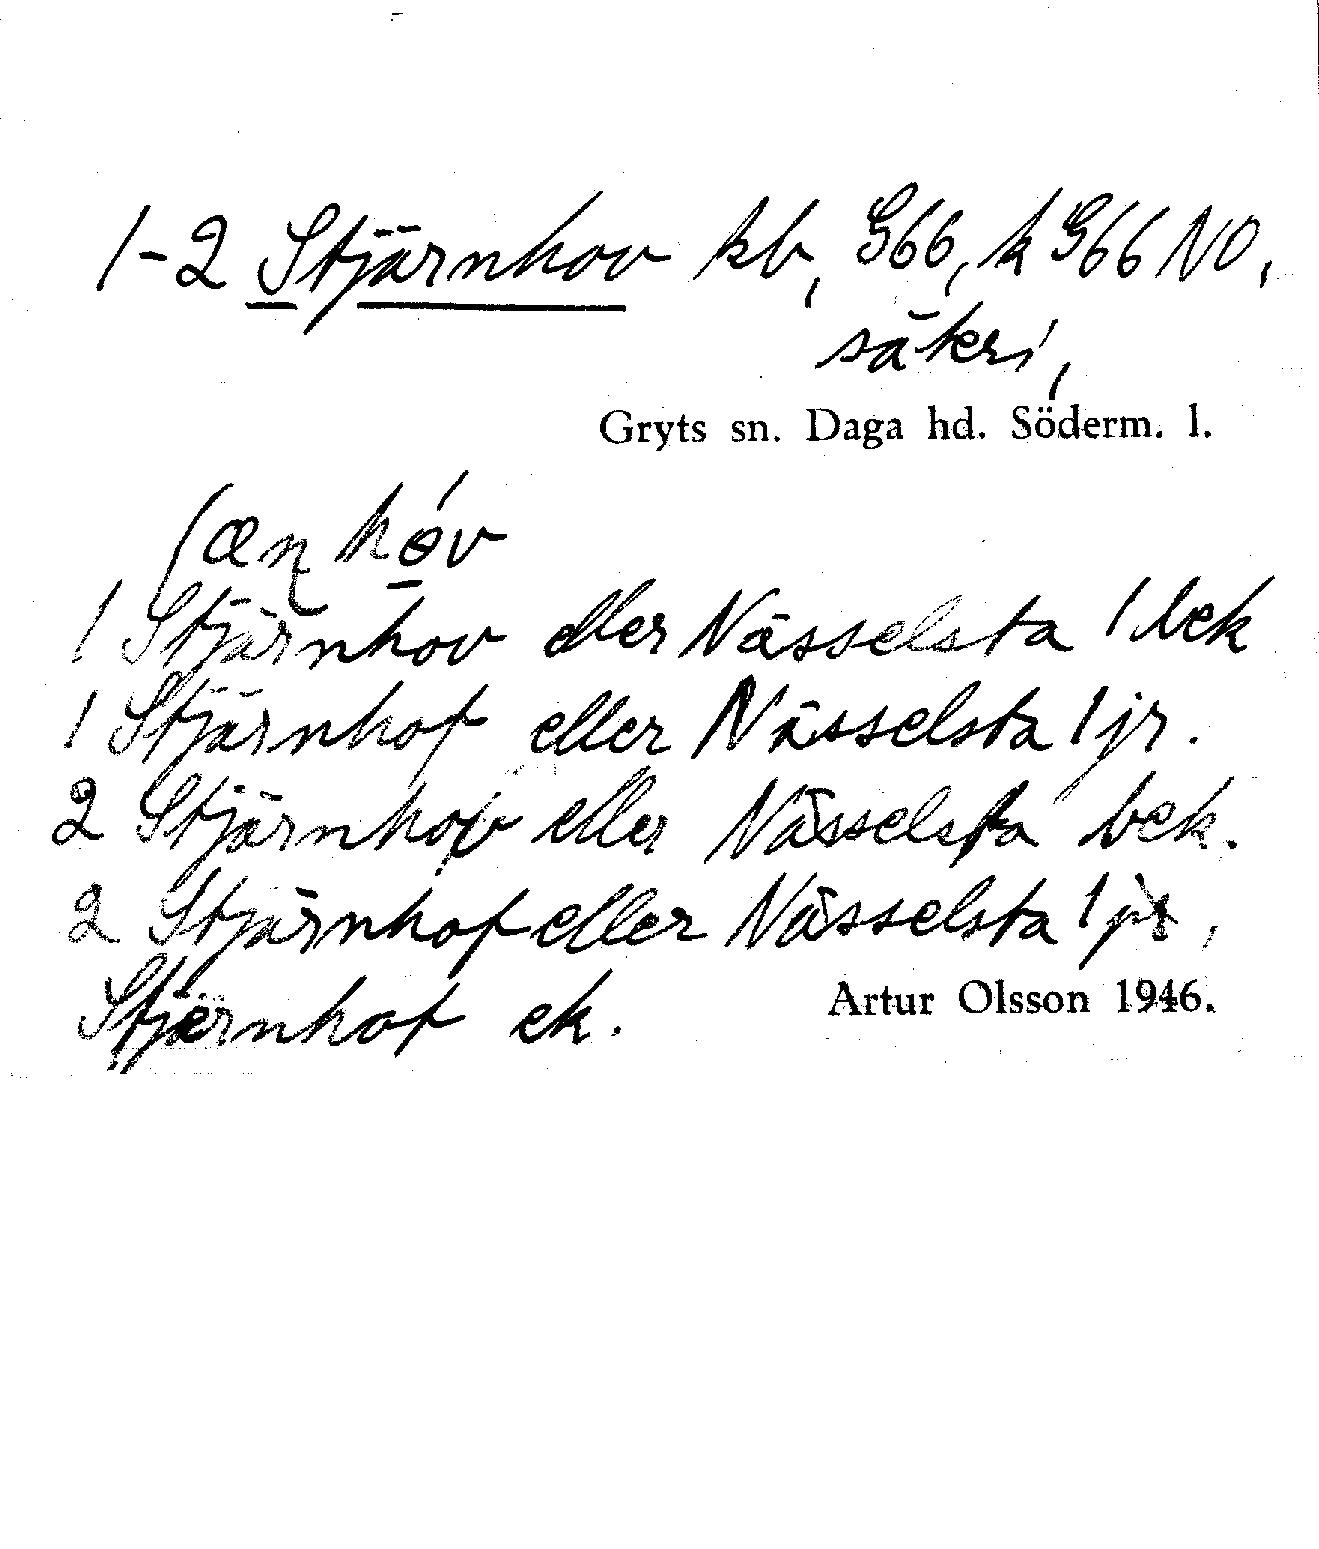 1-2 Stjärnhov kb, G66, k G66 NO,
säteri,
Gryts sn. Daga hd. Söderm. l.
ʃæɳhóv
1 Stjärnhov eller Nässelsta 1 bek
1 Stjärnhof eller Nässelsta 1 jr.
2 Stjärnhov eller Nässelsta bek.
2 Stjärnhof eller Nässelsta 1 jr,
Stjernhof ek.
Artur Olsson 1946.